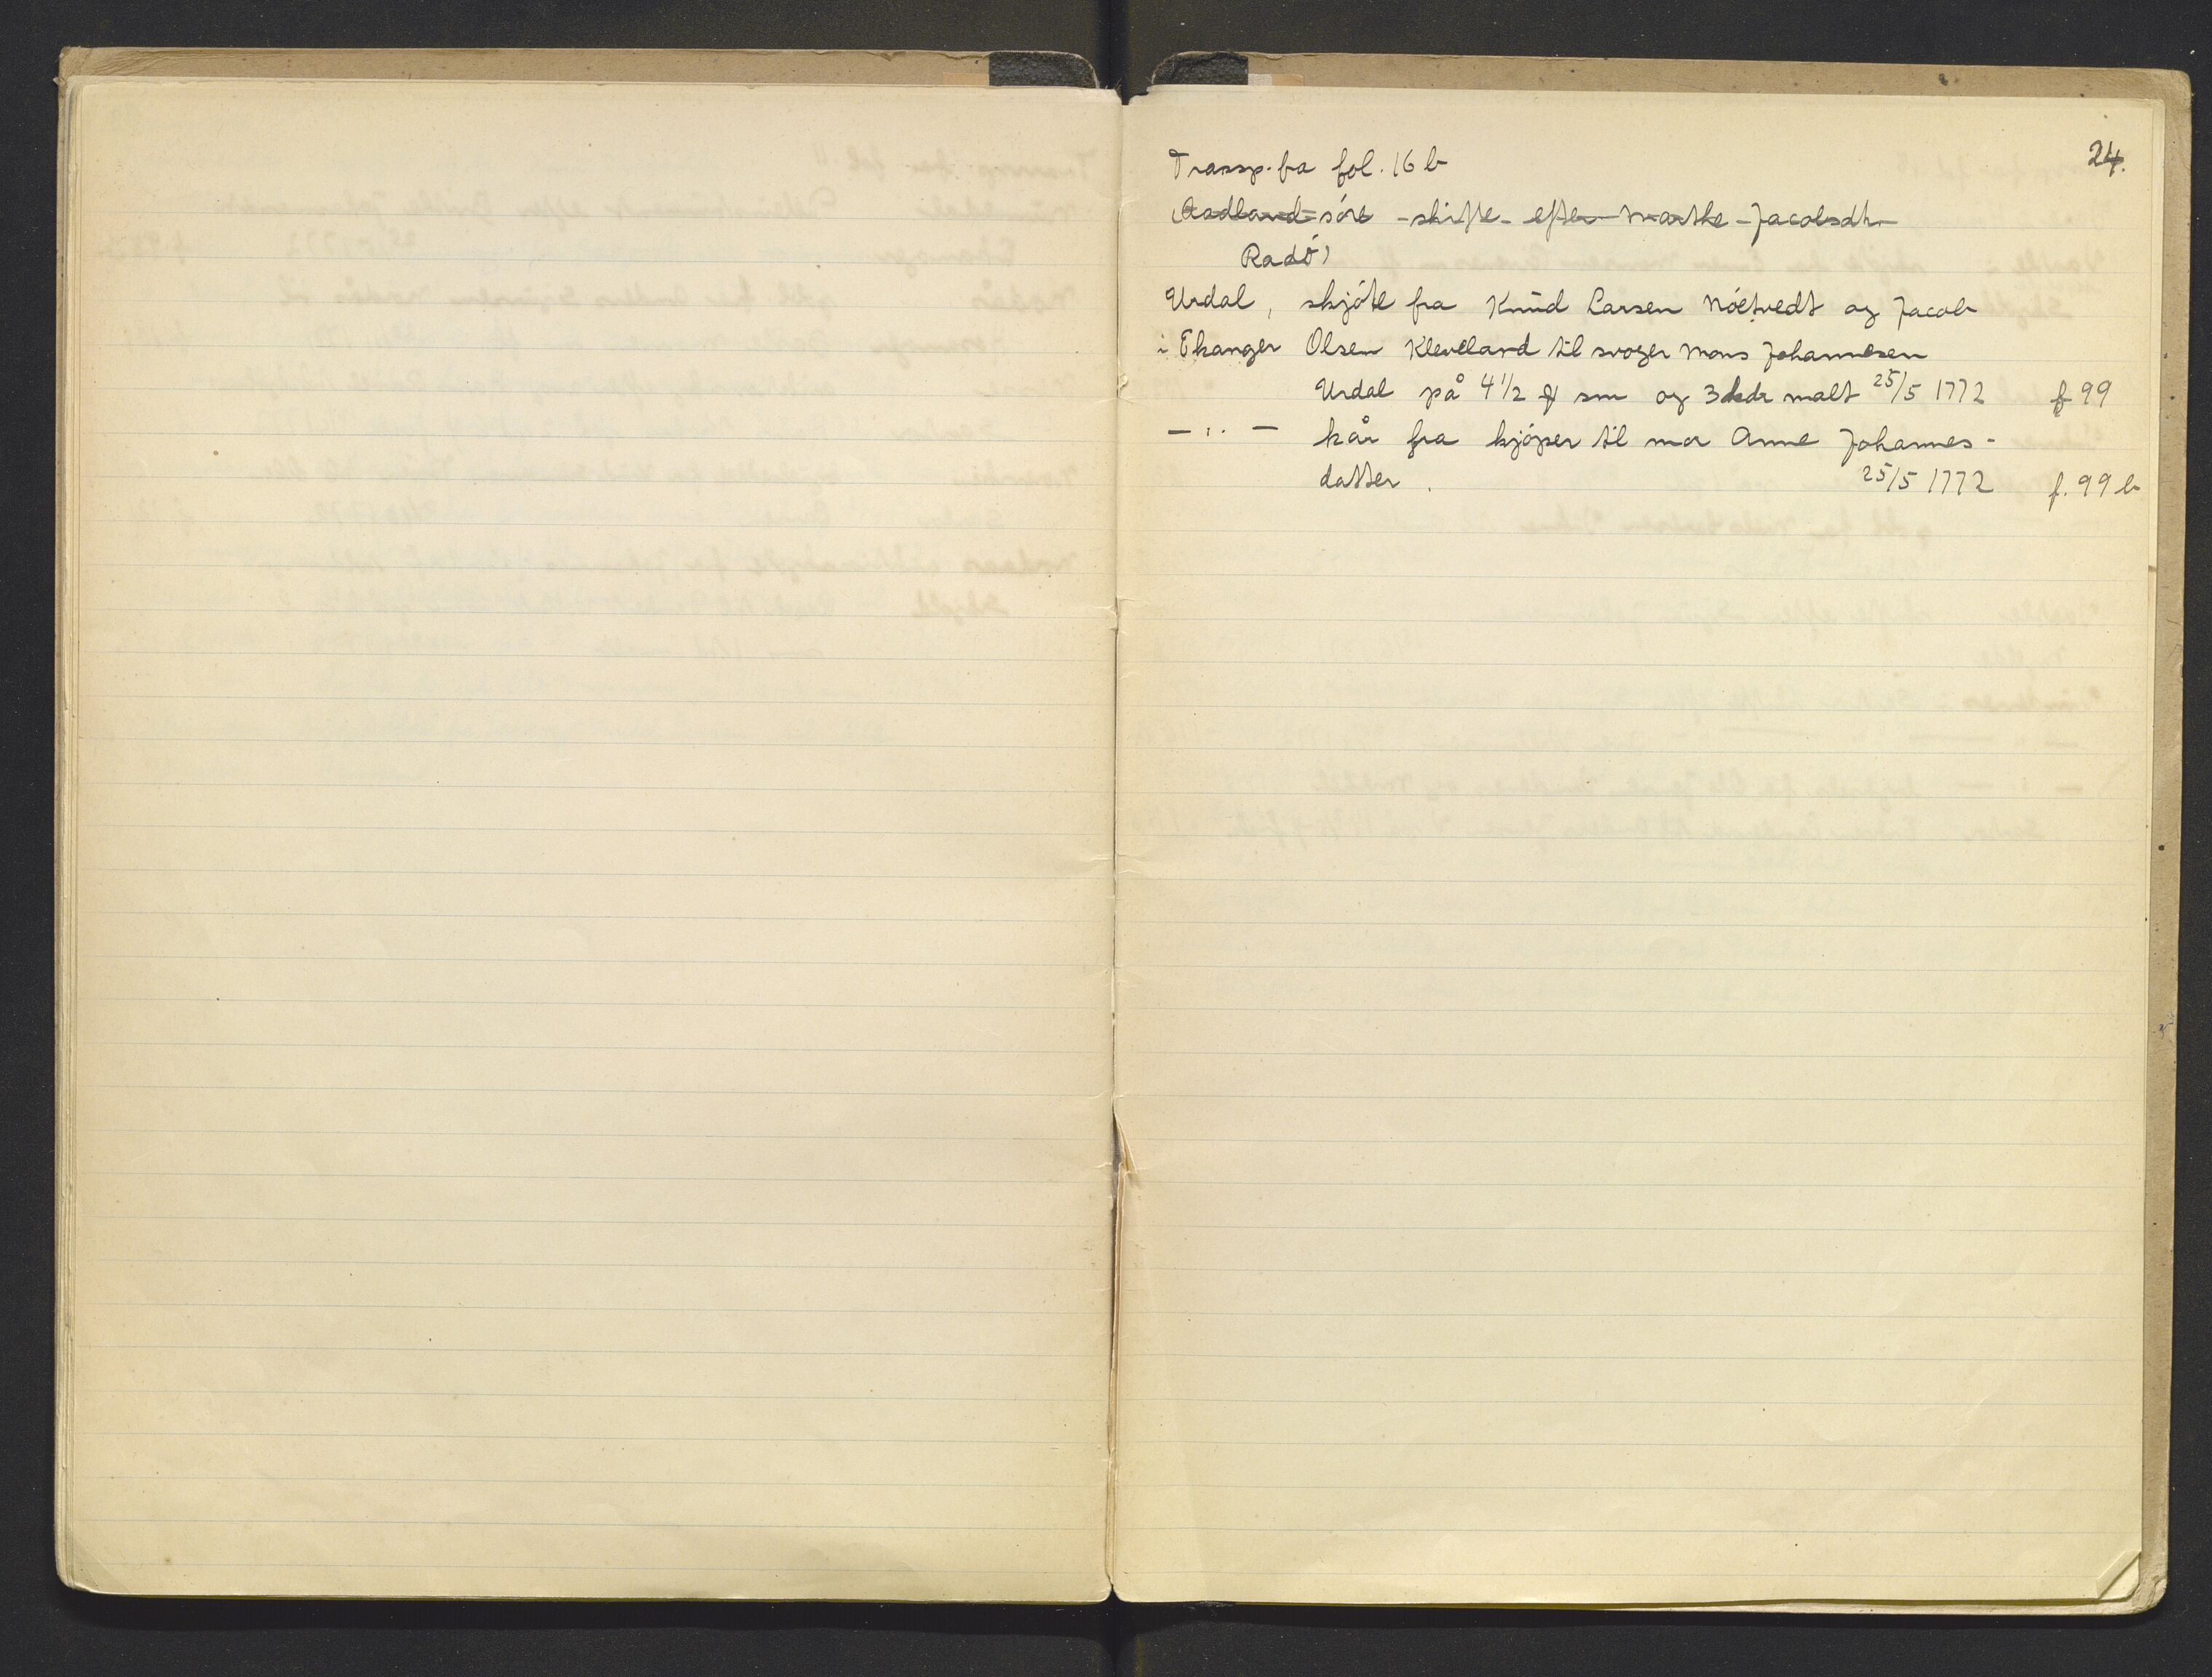 24.
Transp. fra fol. 16 b
(Aadland söre - skifte - efter Marthe Jacobsdtr.
Radö)
Urdal, skjöte fra Knud Larsen Nöetvedt og Jacob
i Ekanger Olsen Kleveland til svoger Mons Johannesen
Urdal på 4 1/2 sm og 3 kdr malt 25/5 1772 f 99
— ,, — kår fra kjöper til mor Anne Johannes-
datter. 25/5 1772 f. 99 b